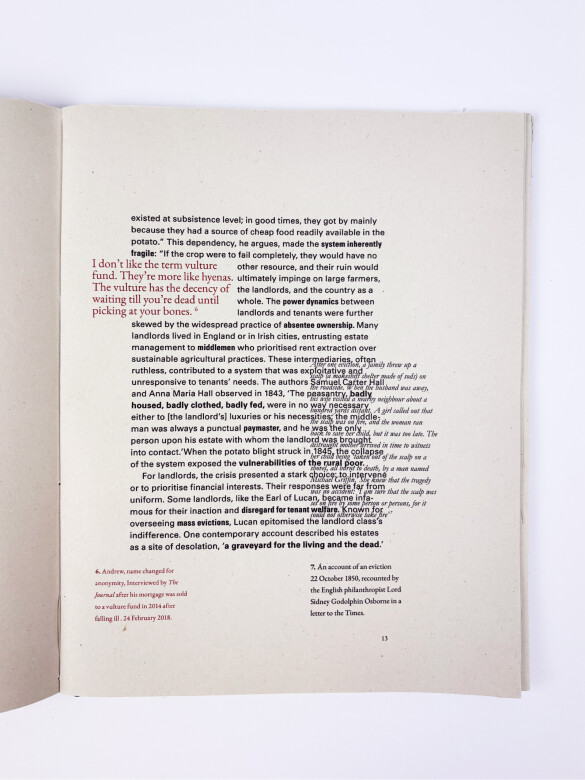 existed at subsistence level; in good times, they got by mainly
because they had a source of cheap food readily available in the
potato.” This dependency, he argues, made the system inherently
fragile: “If the crop were to fail completely, they would have no
other resource, and their ruin would
ultimately impinge on large farmers,
the landlords, and the country as a
whole. The power dynamics between
landlords and tenants were further
skewed by the widespread practice of absentee ownership. Many
landlords lived in England or in Irish cities, entrusting estate
management to middlemen who prioritised rent extraction over
sustainable agricultural practices. These intermediaries, often
ruthless, contributed to a system that was exploitative and
unresponsive to tenants’ needs. The authors Samuel Carter Hall
and Anna Maria Hall observed in 1843, ‘The peasantry, badly
housed, badly clothed, badly fed, were in no way necessary
either to [the landlord’s] luxuries or his necessities; the middle-
man was always a punctual paymaster, and he was the only
person upon his estate with whom the landlord was brought
into contact.’ When the potato blight struck in 1845, the collapse
of the system exposed the vulnerabilities of the rural poor.
For landlords, the crisis presented a stark choice: to intervene
or to prioritise financial interests. Their responses were far from
uniform. Some landlords, like the Earl of Lucan, became infa-
mous for their inaction and disregard for tenant welfare. Known for
overseeing mass evictions, Lucan epitomised the landlord class’s
indifference. One contemporary account described his estates
as a site of desolation, ‘a graveyard for the living and the dead.’
I don’t like the term vulture
fund. They’re more like hyenas.
The vulture has the decency of
waiting till you’re dead until
picking at your bones. 6
After one eviction, a family threw up a
scalp (a makeshift shelter made of sods) on
the roadside. When the husband was away,
his wife visited a nearby neighbour about a
hundred yards distant. A girl called out that
the scalp was on fire, and the woman ran
back to save her child, but it was too late. The
distraught mother arrived in time to witness
her child being ‘taken out of the scalp on a
shovel, all burned to death, by a man named
Michael Griffin.’ She knew that the tragedy
was no accident: ‘I am sure that the scalp was
set on fire by some person or persons, for it
could not otherwise take fire’
6. Andrew, name changed for
anonymity, Interviewed by The
Journal after his mortgage was sold
to a vulture fund in 2014 after
falling ill. 24 February 2018.
7. An account of an eviction
22 October 1850, recounted by
the English philanthropist Lord
Sidney Godolphin Osborne in a
letter to the Times.
13